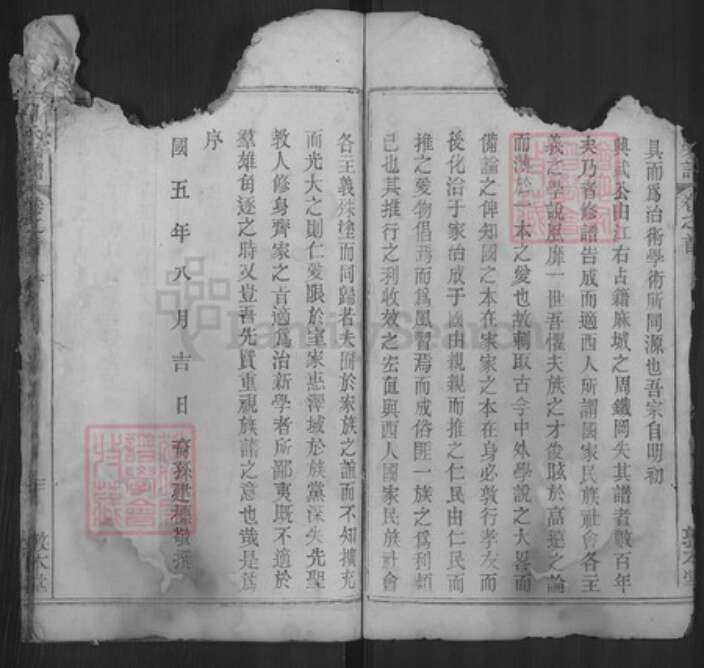 具而爲治術學術所同源也吾宗自明初
興武公由江右占籍麻城之周鐵岡失其譜者數百年
夫乃者修譜告成而適西人所謂國家民族社會各主
義之學說風靡一世吾懼夫族之才俊眩於高遠之論
而漠於一本之愛也故輒取古今中外學說之大畧而
備論之俾知國之本在家家之本在身必敦行孝友而
後化洽于家治成于國由親親而推之仁民由仁民而
推之愛物倡焉而爲風習焉而成俗匪一族之爲利類
已也其推行之利收效之宏直與西人國家民族社會
各主義殊塗而同歸若夫囿於家族之誼而不知擴充
而光大之則仁愛限於室家惠澤域於族黨深失先聖
教人修身齊家之旨適爲治新學者所鄙夷既不適於
羣雄角逐之時又豈吾先賢重視族譜之意也哉是爲
序
國五年八月吉日裔孫建標敬撰
敦本堂
FamilySearch